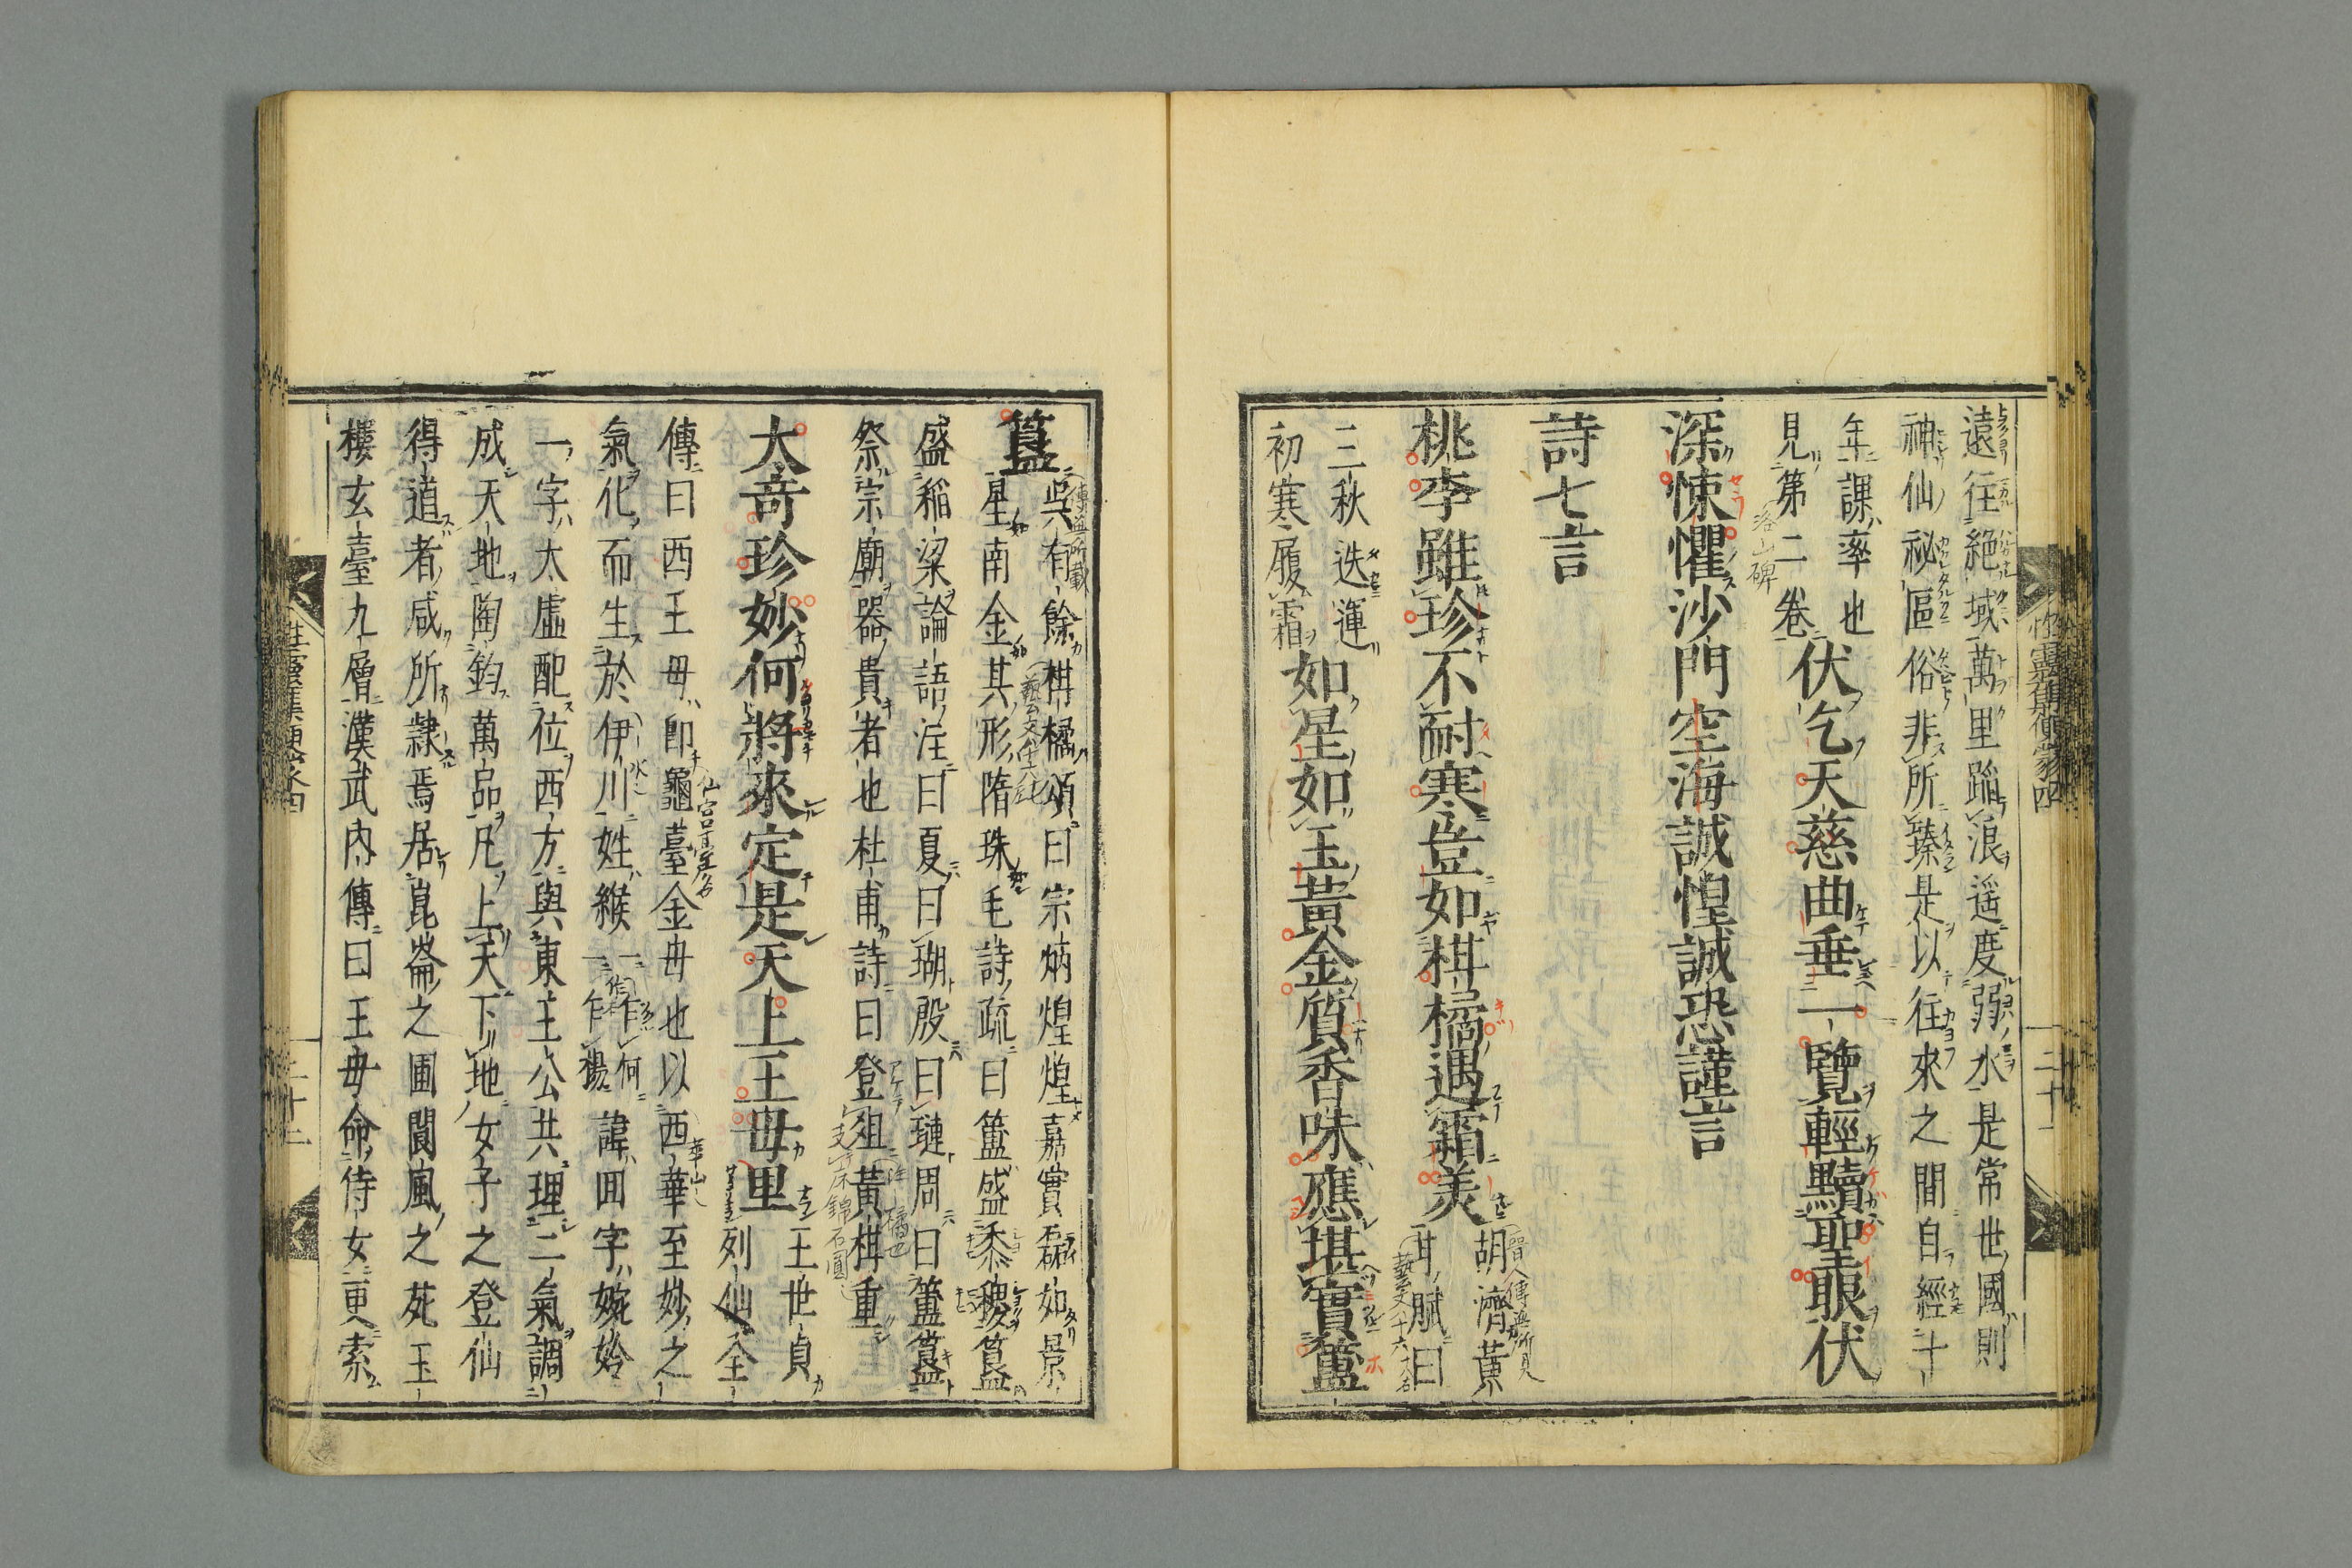 遠往絶域萬里蹈浪遥度弱水是常世國則
神仙祕區俗非所臻是以往來之間自經十
年課率也
見第二卷
伏乞天慈曲垂一覽輕黷聖眼伏
深悚懼沙門空海誠惶誠恐謹言
詩七言
桃李雖珍不耐寒豈如柑橘遇霜美
胡濟黄
柑賦曰
三秋迭運
初寒履霜
如星如玉黄金質香味應堪實簠
簋
吳有餘柑橘頌曰宗炳煌煌嘉實磊如景
星南金其形隋珠毛詩疏曰簠盛黍稷簋
盛稲粱論語注曰夏曰瑚殷曰璉周曰簠簋
祭宗廟器貴者也杜甫詩曰登俎黄柑重
大奇珍妙何將來定是天上王母里
王世貞
列仙全
傳曰西王母即龜臺金母也以西華至妙之
氣化而生於伊川姓緱
一乍何
一乍楊
諱回字婉妗
一字太虛配位西方與東王公共理二氣調
成天地陶鈞萬品凡上天下地女子之登仙
得道者咸所隷焉居崑崙之圃閬風之苑玉
樓玄臺九層漢武内傳曰王母命侍女更索